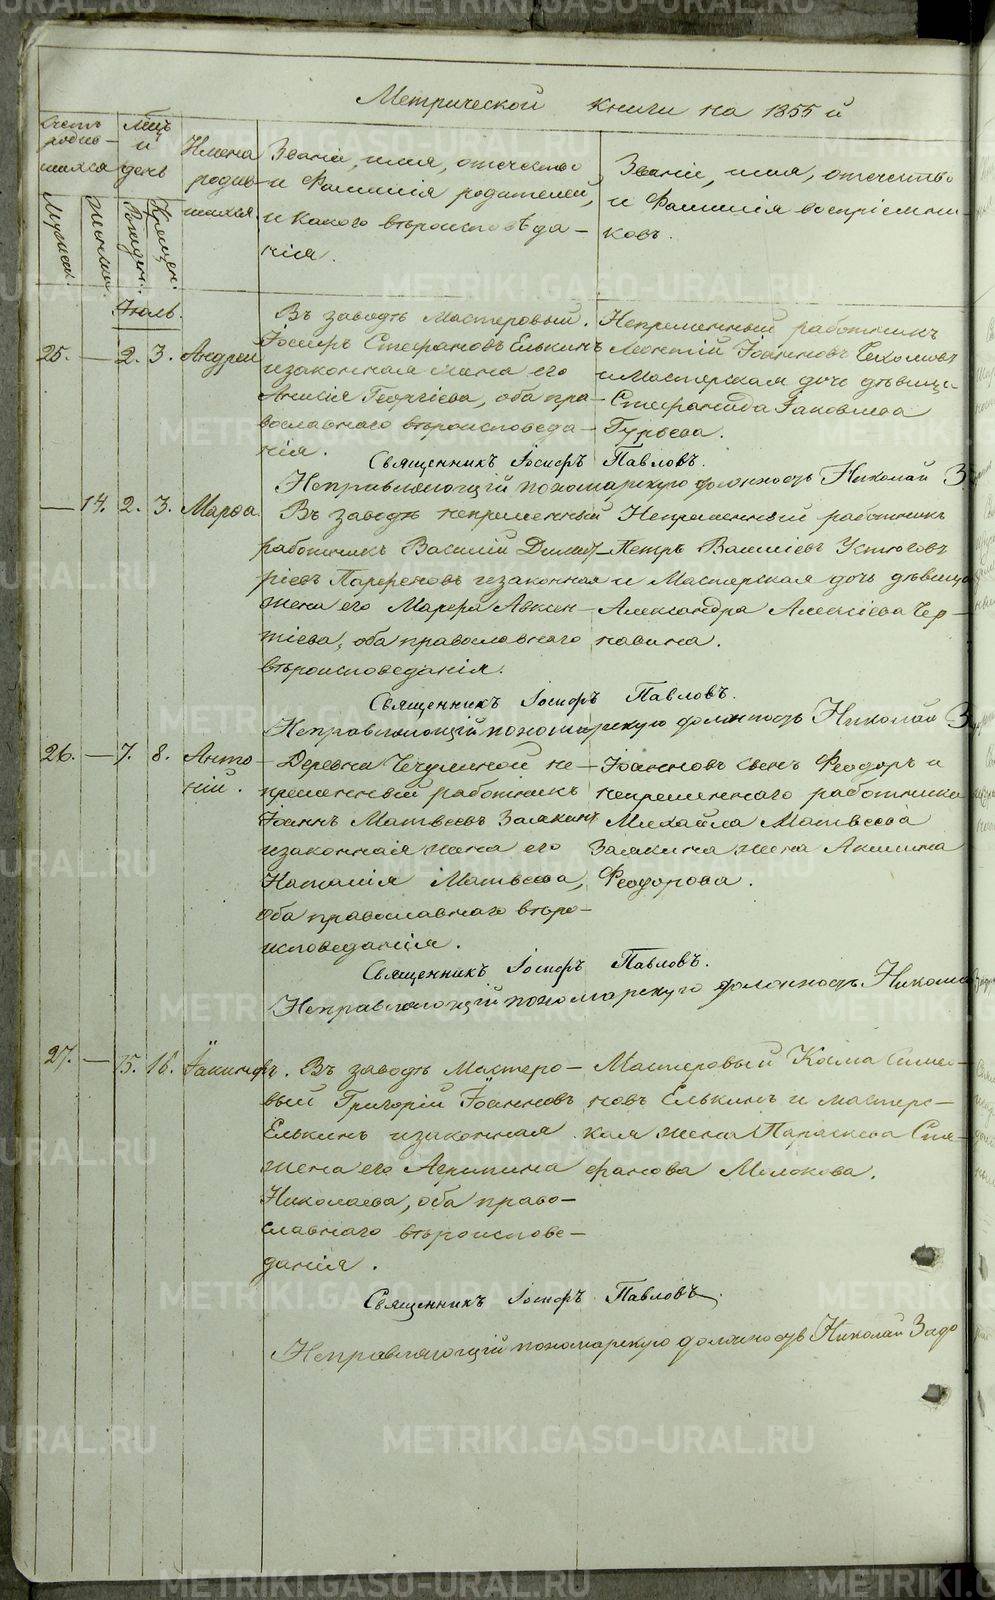 Метрической книги на 1855 й
Счетъ родив-шихся
Мѣц. и день
Имена родив-шихся.
Званіе, имя, отечество
и Фамилія родителей,
и какого вѣроисповѣда-
нія.
Званіе, имя, отечество
и Фамилія воспріемни-
ковъ.
Мужеск.
Женска.
Рожден.
Крещен.
Іюль.
25. — 2. 3. Андрей
Въ заводѣ Мастеровый
Іосифъ Стефановъ Елькинъ
изаконная жена его
Анисія Георгіева, оба пра-
вославнаго вѣроисповеда-
нія.
Непременный работникъ
Леонтій Іоанновъ
и Мастерская дочь дѣвица
Стефанида Іаковлева
Гурьева.
Священникъ Іосифъ Павловъ.
Исправляющій пономарскую должность Николай З
— 14. 2. 3. Марфа
Въ заводѣ непременный
работникъ Василій Димит-
ріевъ Парфеновъ изаконная
жена его Марфа Авксен-
тіева, оба православнаго
вѣроисповеданія.
Непременный работникъ
Петръ Василіевъ Устюговъ
и Мастерская дочь дѣвица
Александра Алексіева Чер-
павина.
Священникъ Іосифъ Павловъ.
Исправляющій пономарскую должность Николай З
26. — 7. 8. Анто-
ній.
Деревни Чечулиной не-
пременный работникъ
Іоаннъ Матвѣевъ Заякинъ
изаконная жена его
Наталія Матвѣева,
оба православнаго вѣро-
исповеданія.
Іоанновъ сынъ Феодоръ и
непременнаго работника
Михаила Матвѣева
Заякина жена Акилина
Феодорова.
Священникъ Іосифъ Павловъ.
Исправляющій пономарскую должность Никола
27. — 15. 16. Іакинфъ.
Въ заводѣ Мастеро-
вый Григорій Іоанновъ
Елькинъ изаконная
жена его Агрипина
Николаева, оба право-
славнаго вѣроиспове-
данія.
Мастеровый Косма Симео-
новъ Елькинъ и мастерс-
кая жена Параскева Сте-
фанова Молокова.
Священникъ Іосифъ Павловъ.
Исправляющій пономарскую должность Николай Задо
METRIKI.GASO-URAL.RU